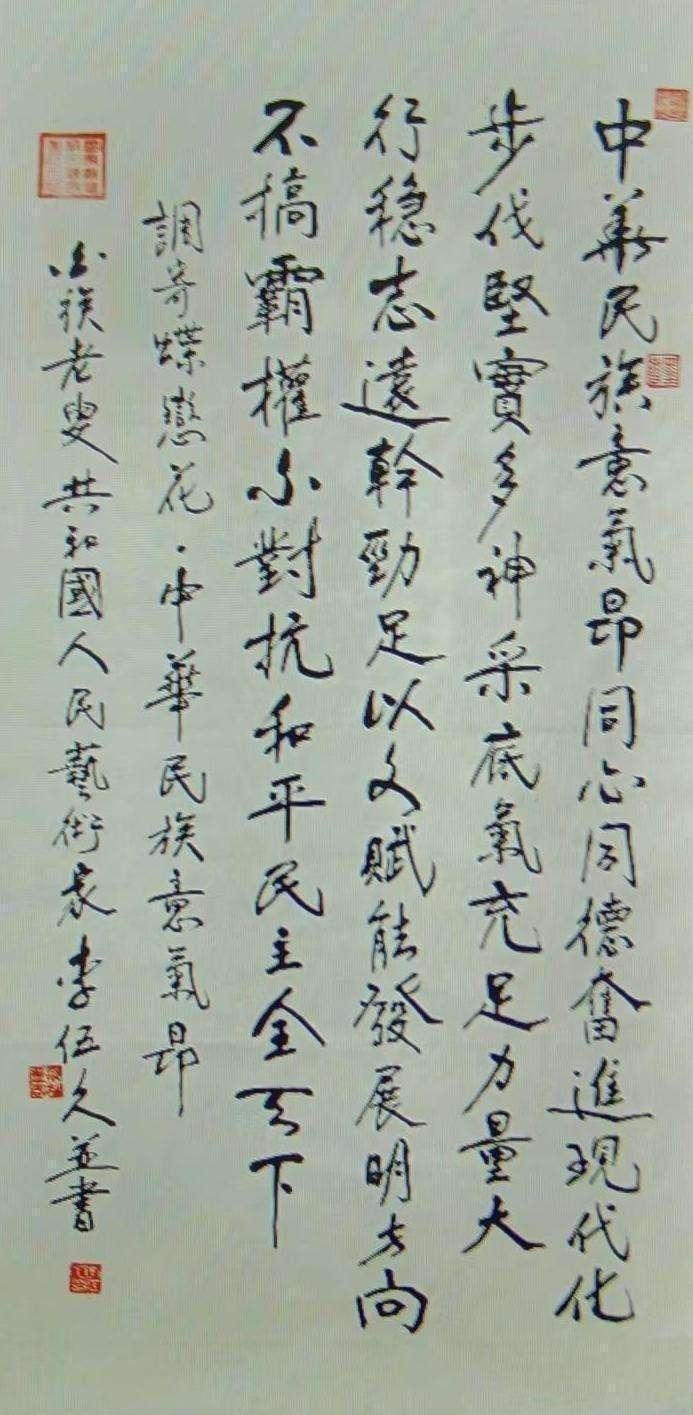 中華民族意氣昂同心同德奮進現代化
步伐堅實多神采底氣充足力量大
行稳志遠幹勁足以文賦能發展明方向
不搞霸權不對抗和平民主全天下
調寄蝶戀花·中華民族意氣昂
白族老叟共和國人民藝術家李伍久並書